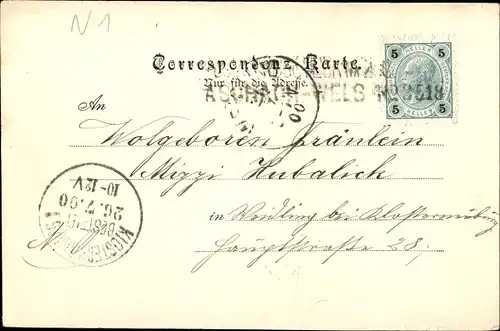 N 1
Correspondenz Karte.
Nur für die Adresse.
ASCHACH-WELS No 3518
5 HELLER 5
5 HELLER 5
An
Wolgeboren Fräulein
Mizzi Hubalick
in Weidling bei Klosterneuburg
Hauptstraße 28.
N.Ö.
KLOSTERNEUBURG
BESTELLT
26.7.00
10-12V
00